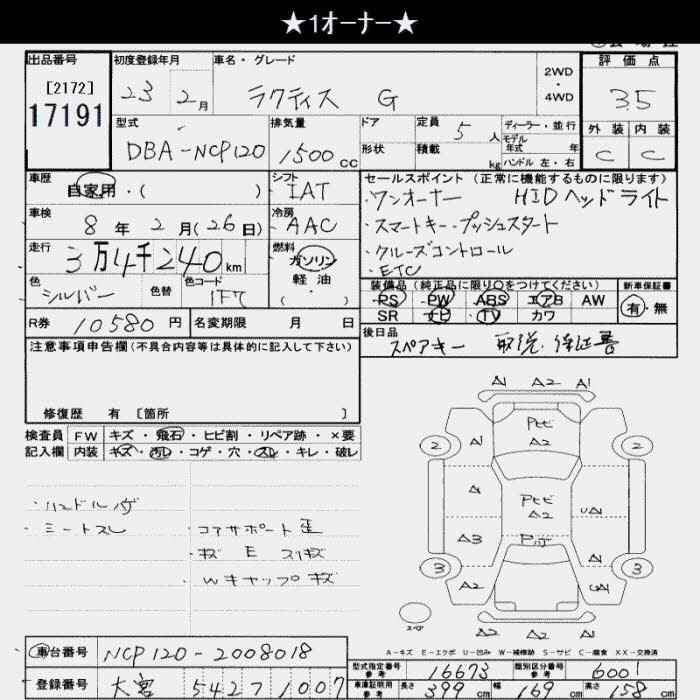 ★1オーナー★
出品番号 初度登録年月 車名・グレード 2WD・4WD 評価点
[2172]
17191
23年 2月 ラクティス G 3.5
型式 排気量 ドア 定員 5人 ディーラー・並行 外装 内装
DBA-NCP120 1500cc 形状 積載 kg モデル年式 年 ハンドル 左・右 C C
車歴 自家用・( ) シフト IAT セールスポイント (正常に機能するものに限ります)
・ワンオーナー HIDヘッドライト
車検 8年 2月(26日) 冷房 AAC ・スマートキー・プッシュスタート
走行 3万4千240km 燃料 ガソリン 軽油 ( ・ ) ・クルーズコントロール
・ETC
色 シルバー 色替 色コード 1F7 装備品 (純正品に限り○をつけてください) 新車保証書
PS PW ABS エアB AW 有・無
R券 10580円 名変期限 月 日 SR ナビ TV カワ
後日品 スペアキー 取説・保証書
注意事項申告欄 (不具合内容等は具体的に記入して下さい)
修復歴 有 [箇所 ]
検査員 FW キズ・飛石・ヒビ割・リペア跡・×要
記入欄 内装 キズ・汚レ・コゲ・穴・スレ・キレ・破レ
・ハンドルハゲ
・シートスレ ・コアサポート歪
・キズ E スリキズ
・Wキャップキズ
A1 A2 A1
2 A1 Pヒビ A2 2
A1 Pヒビ A2 UA1
A3 Pキズ
3 A2 UA1 3
A2 A2 A2
スペア
A-キズ E-エクボ U-凹み W-補修跡 S-サビ C-腐食 XX-交換済
車台番号 NCP120-2008018
登録番号 大宮 542 7 1007
型式指定番号 参考 16673 類別区分番号 参考 6001
車庫証明用 参考 長さ 399cm 幅 169cm 高さ 158cm